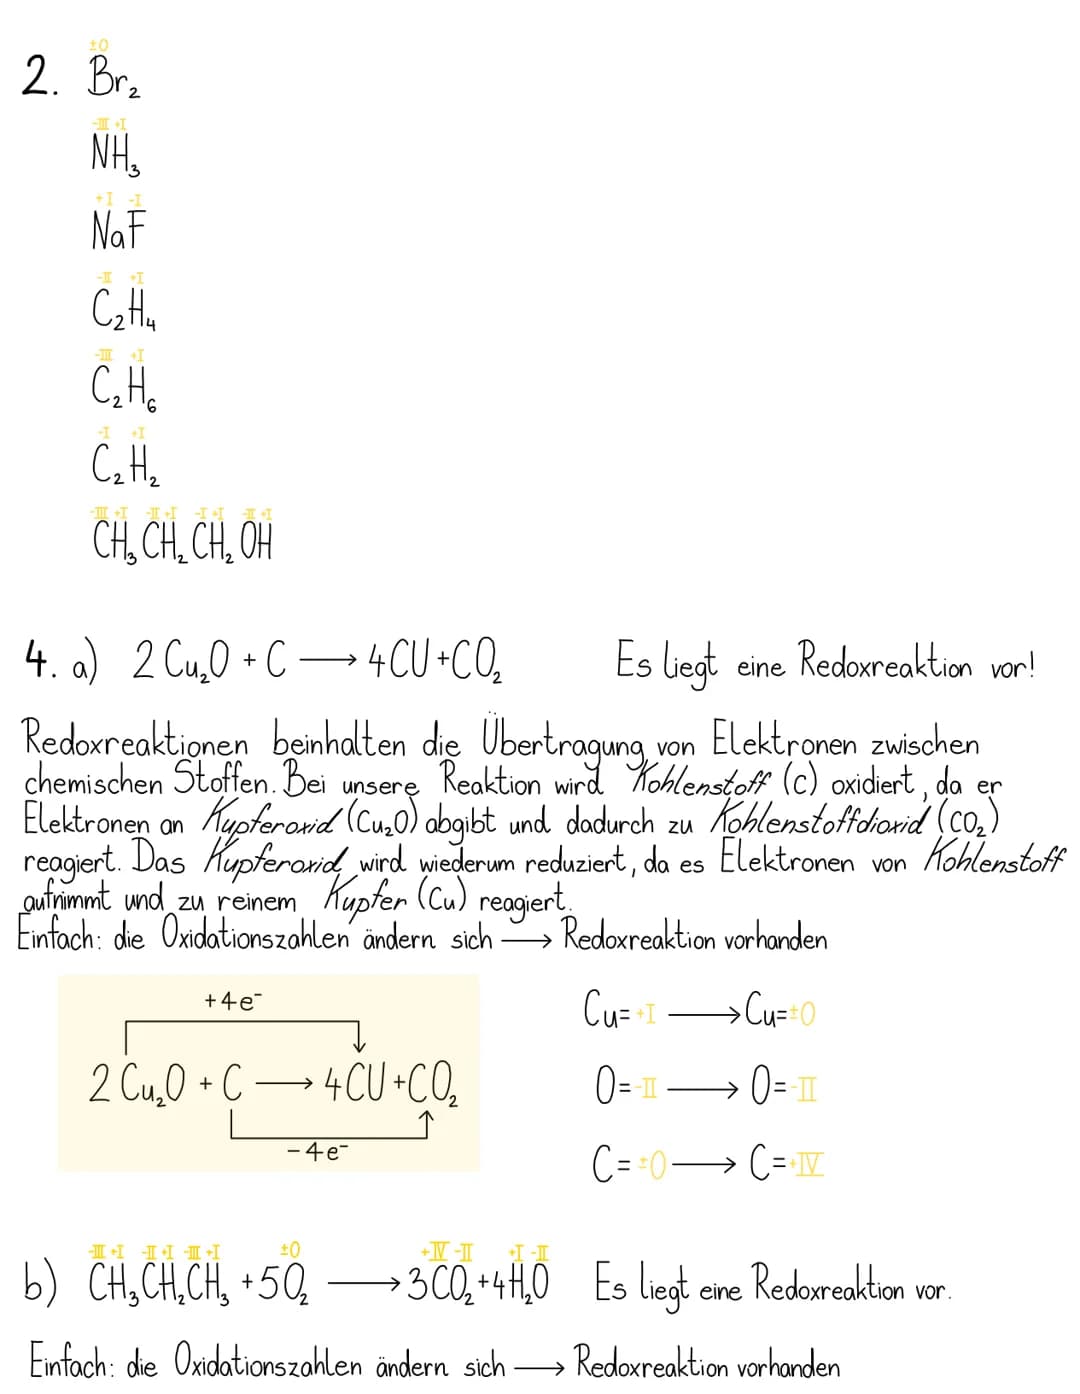 ±0
2. Br₂
-III +I
NH₃
+I -I
NaF
-II +I
C₂H₄
-III +I
C₂H₆
-I +I
C₂H₂
-III +I -II +I -I +I -II +I
CH₃CH₂CH₂OH
4. a) 2 Cu₂O + C ⟶ 4CU+CO₂ Es liegt eine Redoxreaktion vor!
Redoxreaktionen beinhalten die Übertragung von Elektronen zwischen
chemischen Stoffen. Bei unsere Reaktion wird Kohlenstoff (C) oxidiert, da er
Elektronen an Kupferoxid (Cu₂O) abgibt und dadurch zu Kohlenstoffdioxid (CO₂)
reagiert. Das Kupferoxid wird wiederum reduziert, da es Elektronen von Kohlenstoff
aufnimmt und zu reinem Kupfer (Cu) reagiert.
Einfach: die Oxidationszahlen ändern sich ⟶ Redoxreaktion vorhanden
+4e⁻
2 Cu₂O + C ⟶ 4CU+CO₂
-4e⁻
Cu= +I ⟶ Cu=±0
O=-II ⟶ O=-II
C=±0 ⟶ C=+IV
-III +I -II +I -III +I ±0 +IV -II +I -II
b) CH₃CH₂CH₃ +5O₂ ⟶ 3CO₂+4H₂O Es liegt eine Redoxreaktion vor.
Einfach: die Oxidationszahlen ändern sich ⟶ Redoxreaktion vorhanden